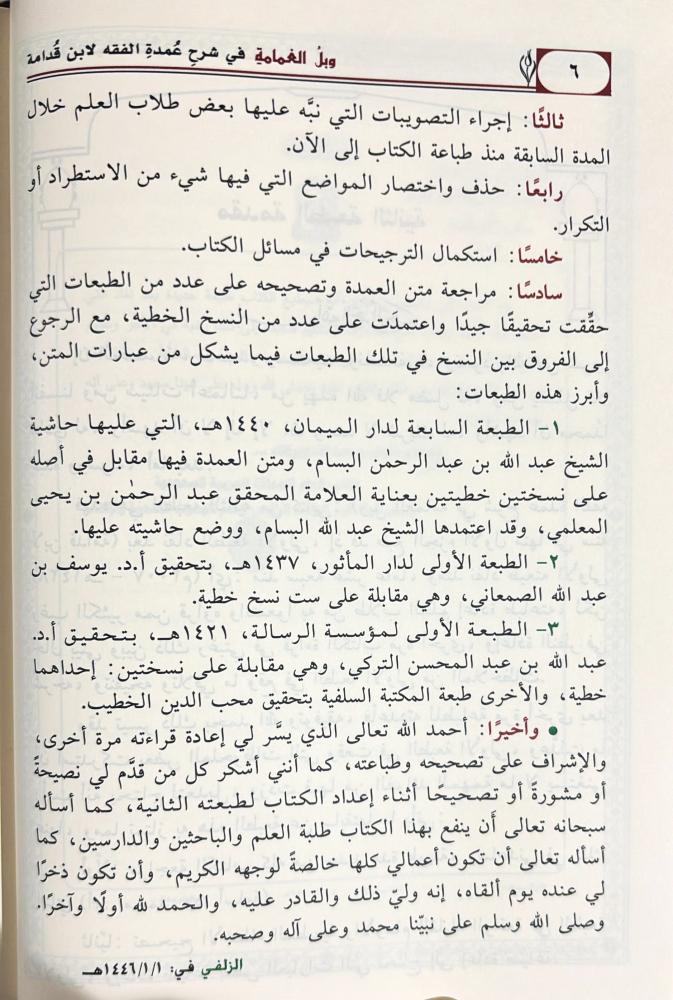 ٦
وبلُ الغمامةِ في شرحِ عُمدةِ الفقه لابن قُدامة
ثالثًا: إجراء التصويبات التي نبَّه عليها بعض طلاب العلم خلال
المدة السابقة منذ طباعة الكتاب إلى الآن.
رابعًا: حذف واختصار المواضع التي فيها شيء من الاستطراد أو
التكرار.
خامسًا: استكمال الترجيحات في مسائل الكتاب.
سادسًا: مراجعة متن العمدة وتصحيحه على عدد من الطبعات التي
حقِّقت تحقيقًا جيدًا واعتمدَت على عدد من النسخ الخطية، مع الرجوع
إلى الفروق بين النسخ في تلك الطبعات فيما يشكل من عبارات المتن،
وأبرز هذه الطبعات:
١- الطبعة السابعة لدار الميمان، ١٤٤٠هـ، التي عليها حاشية
الشيخ عبد الله بن عبد الرحمٰن البسام، ومتن العمدة فيها مقابل في أصله
على نسختين خطيتين بعناية العلامة المحقق عبد الرحمٰن بن يحيى
المعلمي، وقد اعتمدها الشيخ عبد الله البسام، ووضع حاشيته عليها.
٢- الطبعة الأولى لدار المأثور، ١٤٣٧هـ، بتحقيق أ.د. يوسف بن
عبد الله الصمعاني، وهي مقابلة على ست نسخ خطية.
٣- الطبعة الأولى لمؤسسة الرسالة، ١٤٢١هـ، بتحقيق أ.د.
عبد الله بن عبد المحسن التركي، وهي مقابلة على نسختين: إحداهما
خطية، والأخرى طبعة المكتبة السلفية بتحقيق محب الدين الخطيب.
• وأخيرًا: أحمد الله تعالى الذي يسَّر لي إعادة قراءته مرة أخرى،
والإشراف على تصحيحه وطباعته، كما أنني أشكر كل من قدَّم لي نصيحةً
أو مشورةً أو تصحيحًا أثناء إعداد الكتاب لطبعته الثانية، كما أسأله
سبحانه تعالى أن ينفع بهذا الكتاب طلبة العلم والباحثين والدارسين، كما
أسأله تعالى أن تكون أعمالي كلها خالصةً لوجهه الكريم، وأن تكون ذخرًا
لي عنده يوم ألقاه، إنه وليّ ذلك والقادر عليه، والحمد لله أولًا وآخرًا.
وصلى الله وسلم على نبيِّنا محمد وعلى آله وصحبه.
الزلفي في: ١٤٤٦/١/١هـ